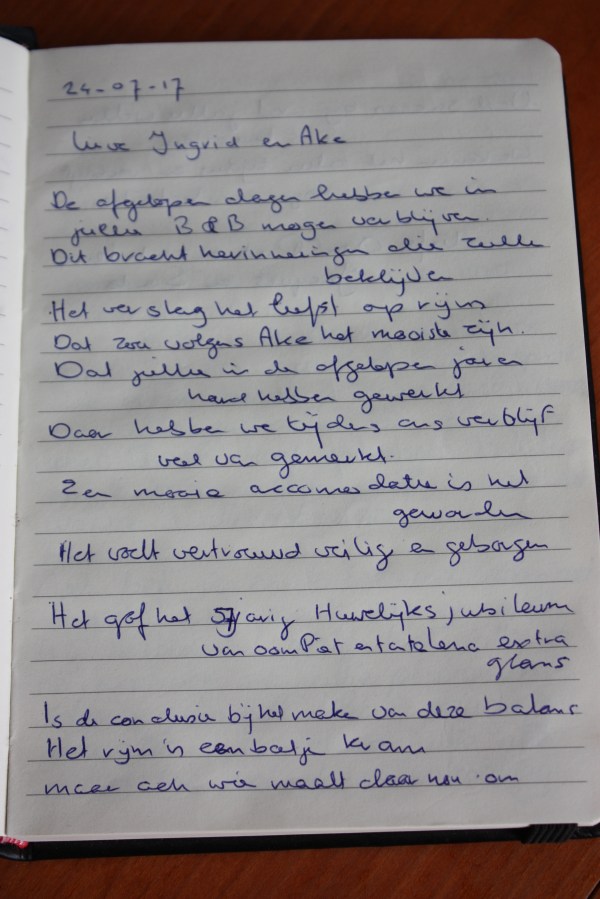 24-07-17
Lieve Ingrid en Ake
De afgelopen dagen hebben we in
jullie B&B mogen verblijven.
Dit bracht herinneringen die zullen
beklijven
Het verslag het liefst op rijm
Dat zou volgens Ake het mooiste zijn.
Dat jullie in de afgelopen jaren
hard hebben gewerkt
Daar hebben we tijdens ons verblijf
veel van gemerkt.
Een mooie accomodatie is het
geworden
Het voelt vertrouwd veilig en geborgen
Het gaf het jarig Huwelijksjubileum
van oom Piet en tante Lena extra
glans
Is de conclusie bij het make van deze balans
Het rijm is een beetje krom
maar ach wie maalt daar nou om